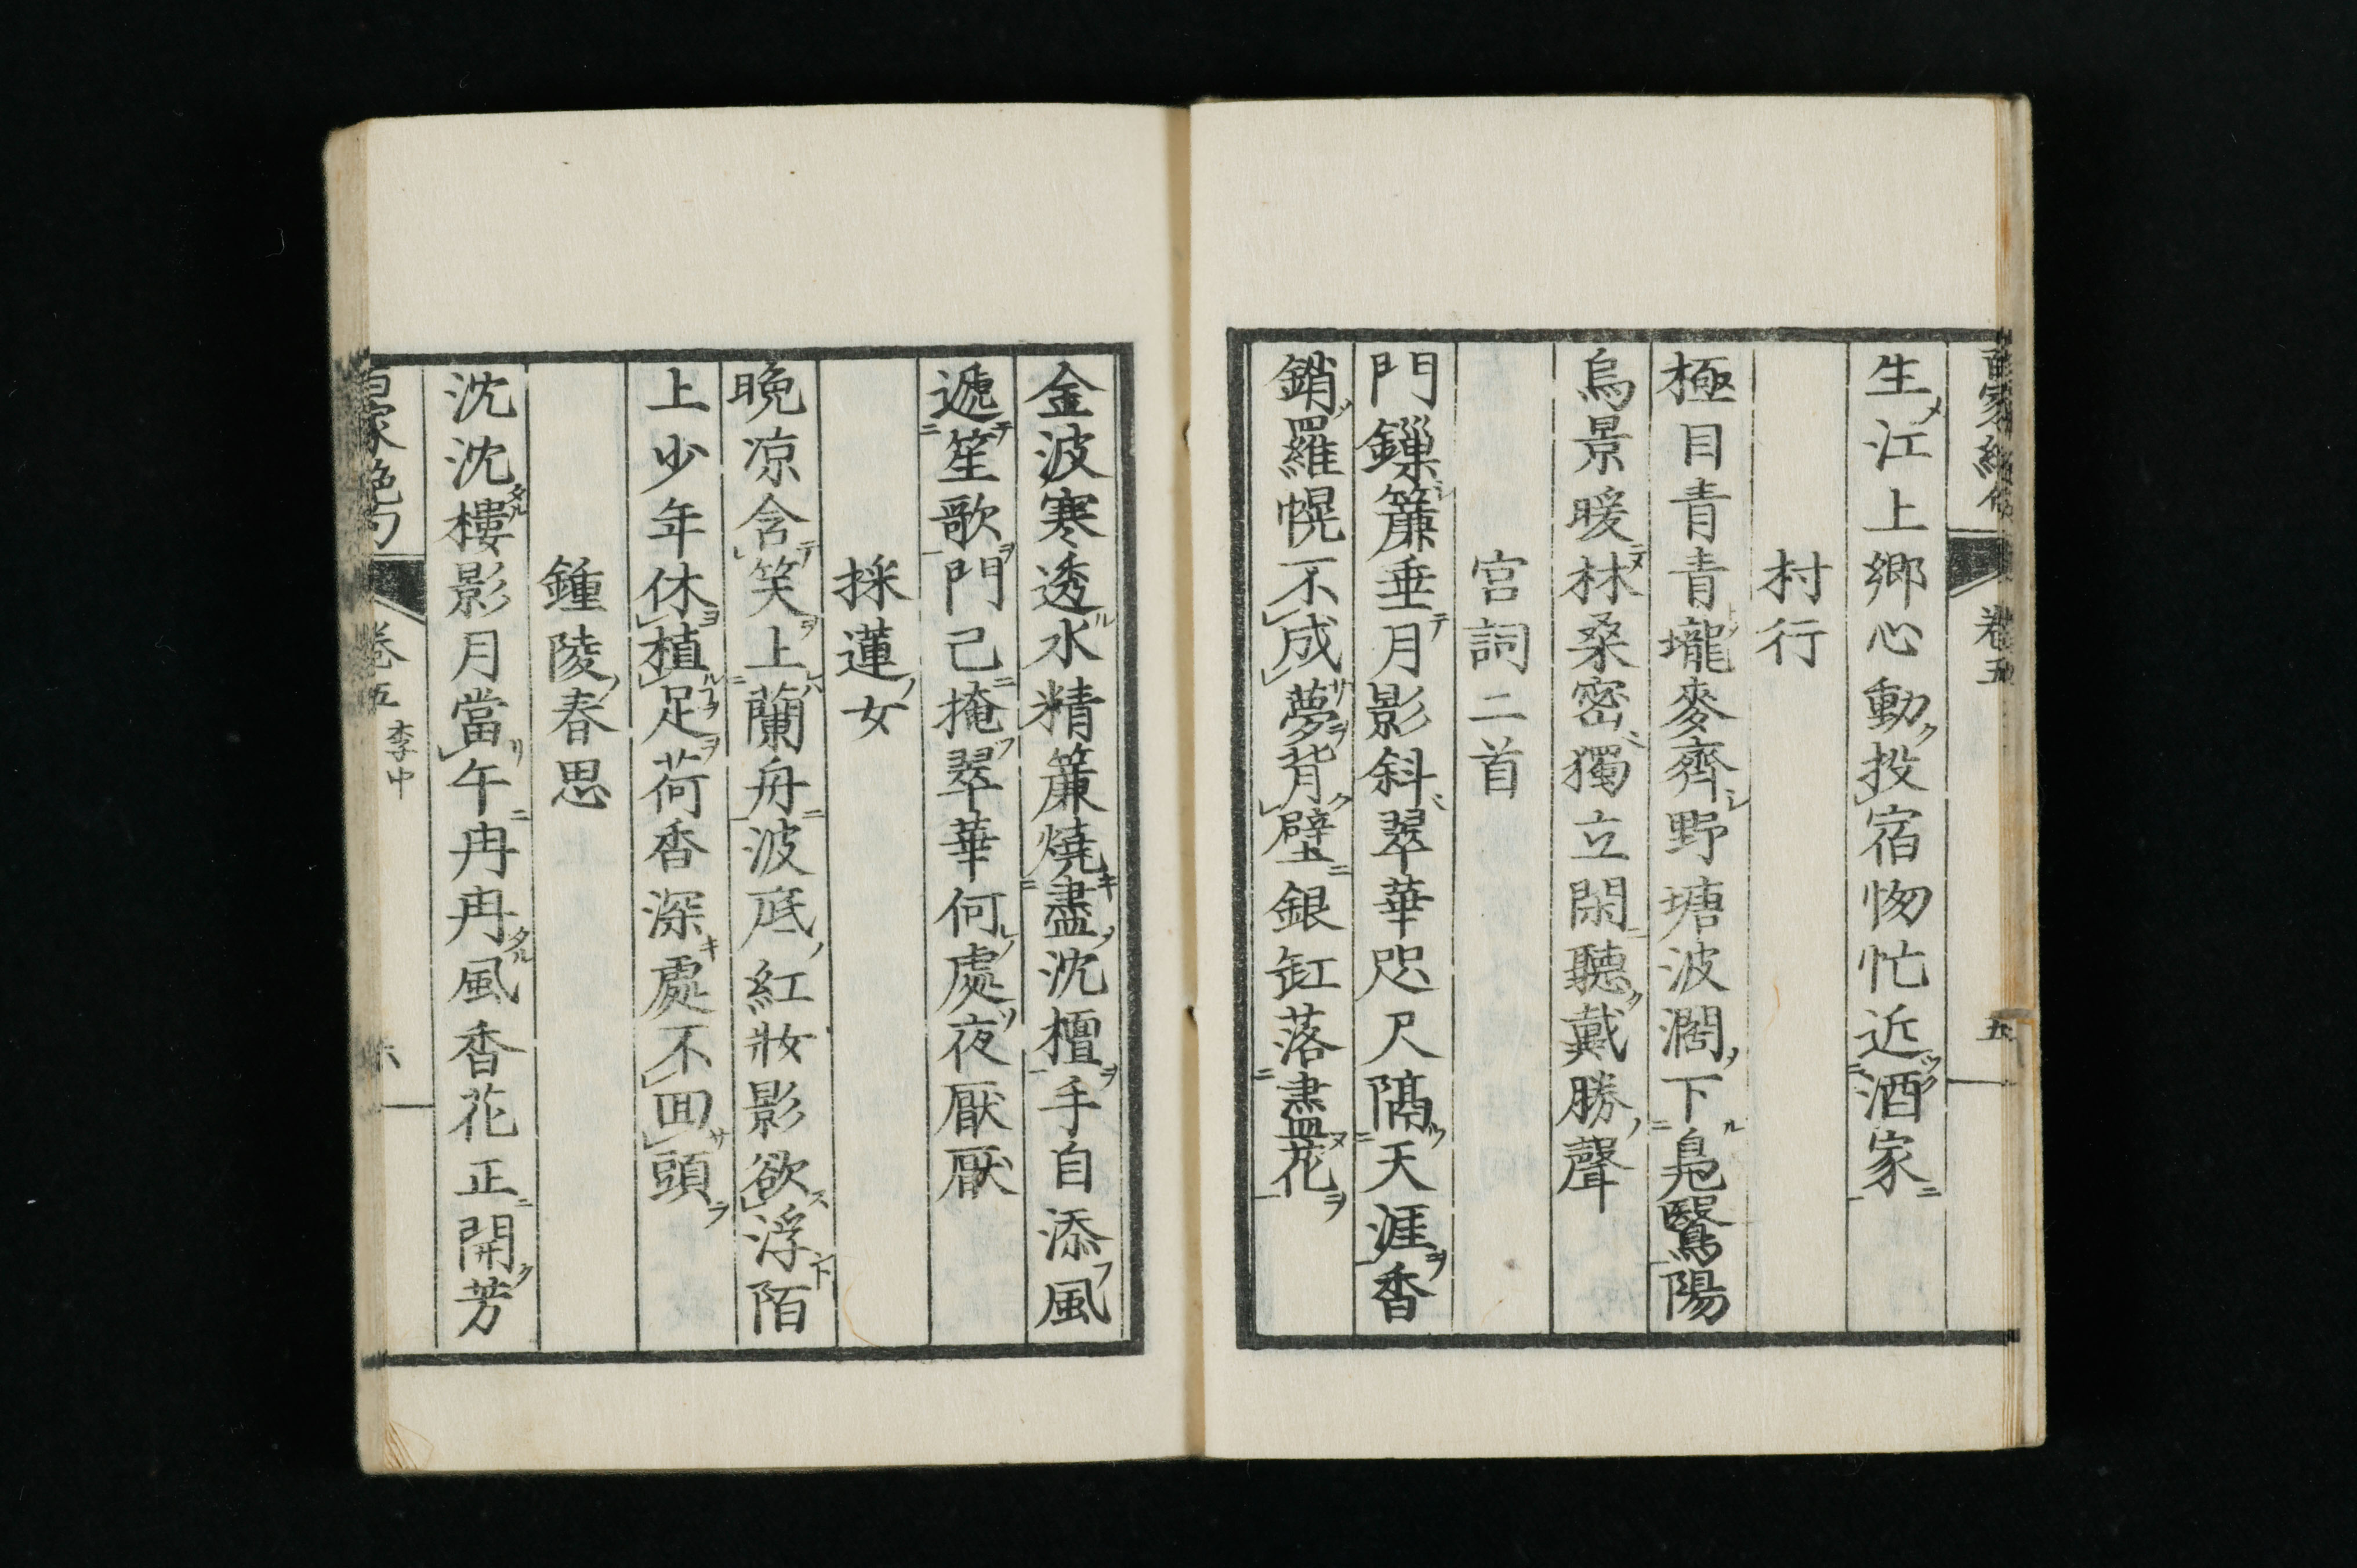 百家絶句 卷五 五
生江上鄉心動投宿怱忙近酒家
村行
極目青青壠麥齊野塘波濶下鳧鷖陽
烏景暖林桑密獨立閑聽戴勝聲
宮詞二首
門鏁簾垂月影斜翠華咫尺隔天涯香
銷羅幌不成夢背壁銀缸落盡花
金波寒透水精簾燒盡沈檀手自添風
遞笙歌門已掩翠華何處夜厭厭
採蓮女
晚凉含笑上蘭舟波底紅妝影欲浮陌
上少年休植足荷香深處不囬頭
鍾陵春思
沈沈樓影月當午冉冉風香花正開芳
百家絶句 卷五 李中 六